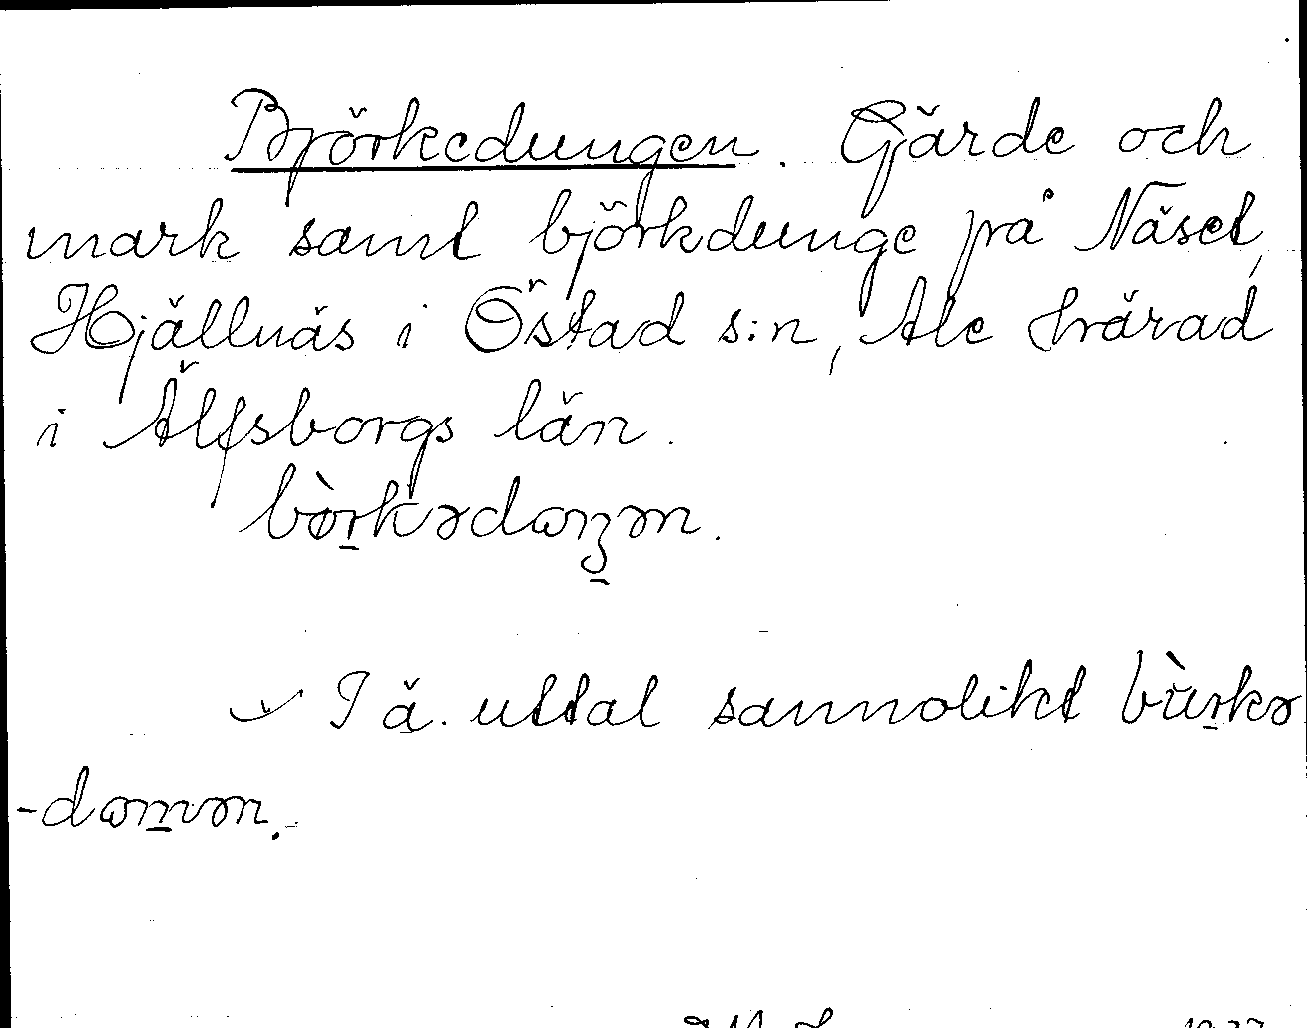 Björkedungen. Gjärde och
mark samt björkdunge på Näset,
Hjällnäs i Östad s:n, Ale härad
i Älfsborgs län.
bòrkədaŋən.
I ä. uttal sannolikt bùrkə
-